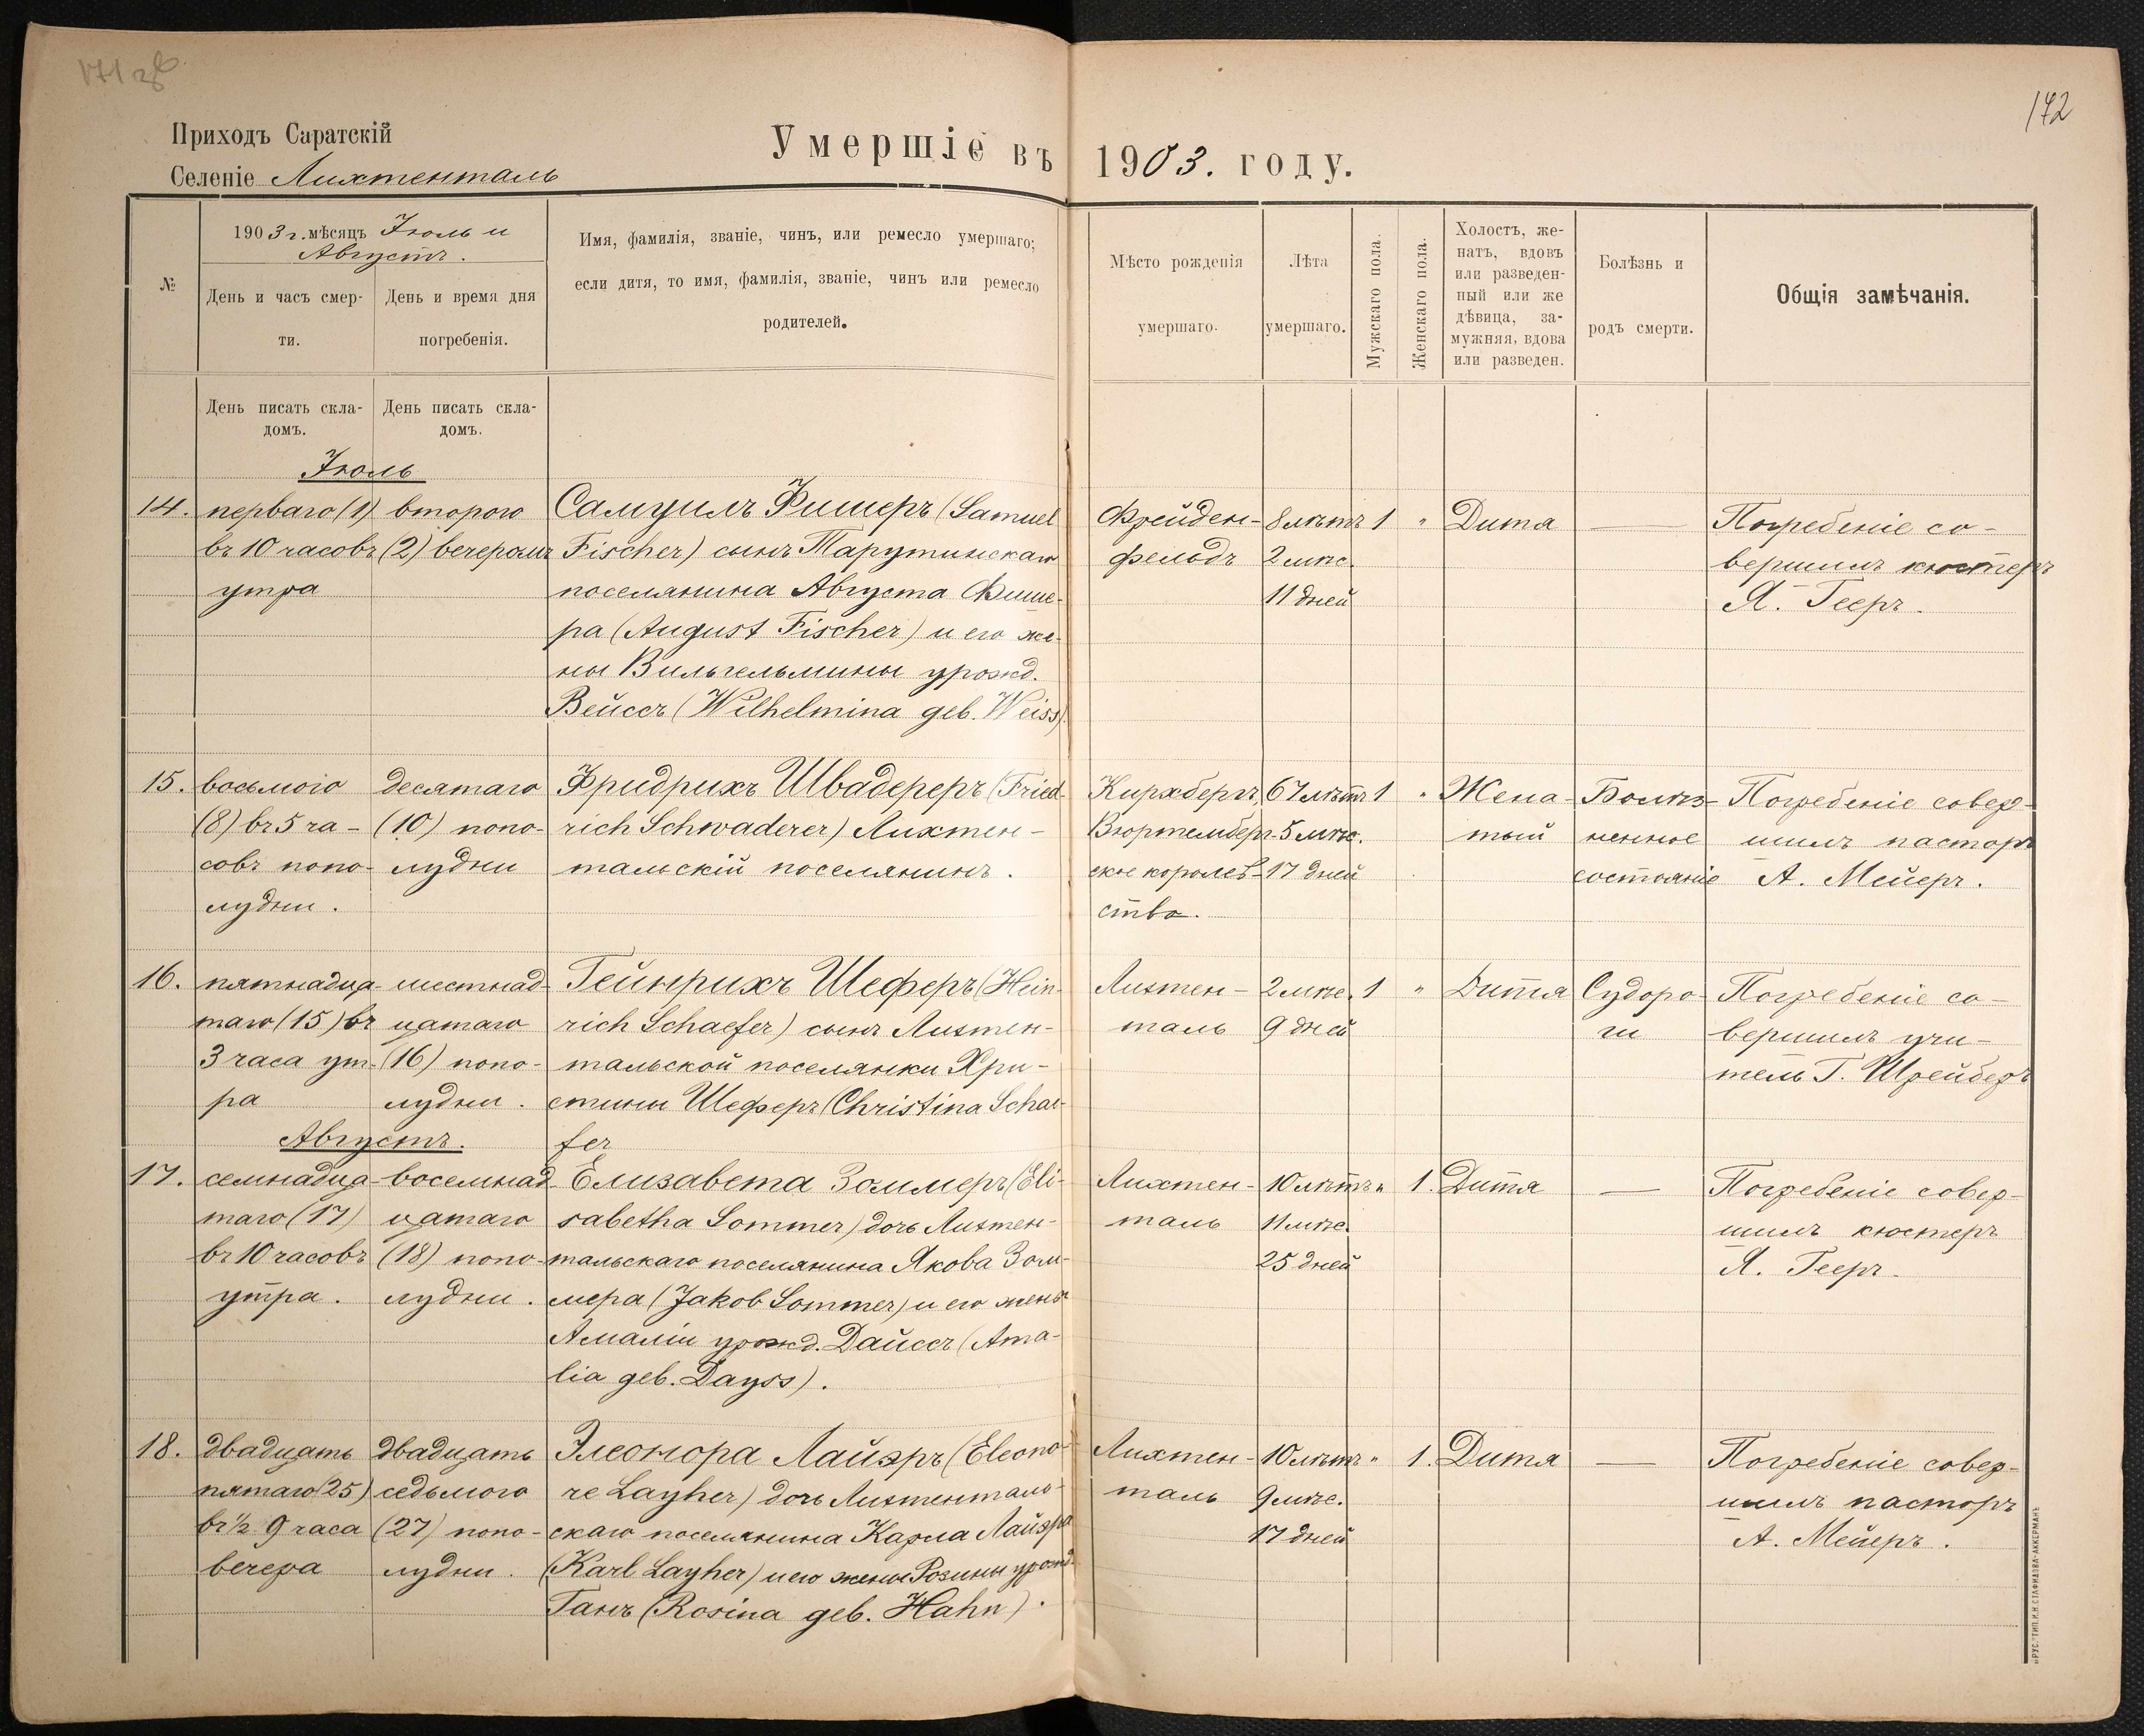 171 об
172
Приходъ Саратскій
Селеніе Лихтенталь
Умершіе въ 1903. году.
№
1903 г. мѣсяцъ Іюль и
Августъ.
День и часъ смер-
ти.
День и время дня
погребенія.
Имя, фамилія, званіе, чинъ, или ремесло умершаго;
если дитя, то имя, фамилія, званіе, чинъ или ремесло
родителей.
Мѣсто рожденія
умершаго.
Лѣта
умершаго.
Мужскаго пола.
Женскаго пола.
Холостъ, же-
натъ, вдовъ
или разведен-
ный или же
дѣвица, за-
мужняя, вдова
или разведен.
Болѣзнь и
родъ смерти.
Общія замѣчанія.
День писать скла-
домъ.
День писать скла-
домъ.
Іюль
14.
перваго (1)
въ 10 часовъ
утра
второго
(2) вечеромъ
Самуилъ Фишеръ (Samuel
Fischer) сынъ Тарутинскаго
поселянина Августа Фише-
ра (August Fischer) и его же-
ны Вильгельмины урожд.
Вейссъ (Wilhelmina geb. Weiss)
Фрейден-
фельдъ
8 лѣтъ
2 мѣс.
11 дней
1
"
Дитя
—
Погребеніе со-
вершилъ кюстеръ
Я. Гееръ.
15.
восьмого
(8) въ 5 ча-
совъ попо-
лудни.
десятаго
(10) попо-
лудни
Фридрихъ Швадереръ (Fried-
rich Schwaderer) Лихтен-
тальскій поселянинъ.
Кирхбергъ,
Вюртемберг-
ское королев-
ство.
67 лѣтъ
5 мѣс.
17 дней
1
"
Жена-
тый
Болѣз-
ненное
состояніе
Погребеніе совер-
шилъ пасторъ
А. Мейеръ.
16.
пятнадца-
таго (15) въ
3 часа ут-
ра
шестнад-
цатаго
(16) попо-
лудни.
Гейнрихъ Шеферъ (Hein-
rich Schaefer) сынъ Лихтен-
тальской поселянки Хри-
стины Шеферъ (Christina Schae-
fer
Лихтен-
таль
2 мѣс.
9 дней
1
"
Дитя
Судоро-
ги
Погребеніе со-
вершилъ учи-
тель Г. Шрейберъ
Августъ.
17.
семнадца-
таго (17)
въ 10 часовъ
утра.
восемнад-
цатаго
(18) попо-
лудни.
Елизавета Зоммеръ (Eli-
sabetha Sommer) дочь Лихтен-
тальскаго поселянина Якова Зом-
мера (Jakob Sommer) и его жены
Амаліи урожд. Дайссъ (Ama-
lia geb. Dayss).
Лихтен-
таль
10 лѣтъ
11 мѣс.
25 дней
"
1.
Дитя
—
Погребеніе совер-
шилъ кюстеръ
Я. Гееръ.
18.
двадцать
пятаго (25)
въ ½ 9 часа
вечера
двадцать
седьмого
(27) попо-
лудни.
Элеонора Лайэръ (Eleono-
re Layher) дочь Лихтенталь-
скаго поселянина Карла Лайэра
(Karl Layher) и его жены Розины урожд.
Ганъ (Rosina geb. Hahn).
Лихтен-
таль
10 лѣтъ
9 мѣс.
17 дней
"
1.
Дитя
—
Погребеніе совер-
шилъ пасторъ
А. Мейеръ.
„РУС." ТИП. И.Н. СТАФИДОВА-АККЕРМАНЪ